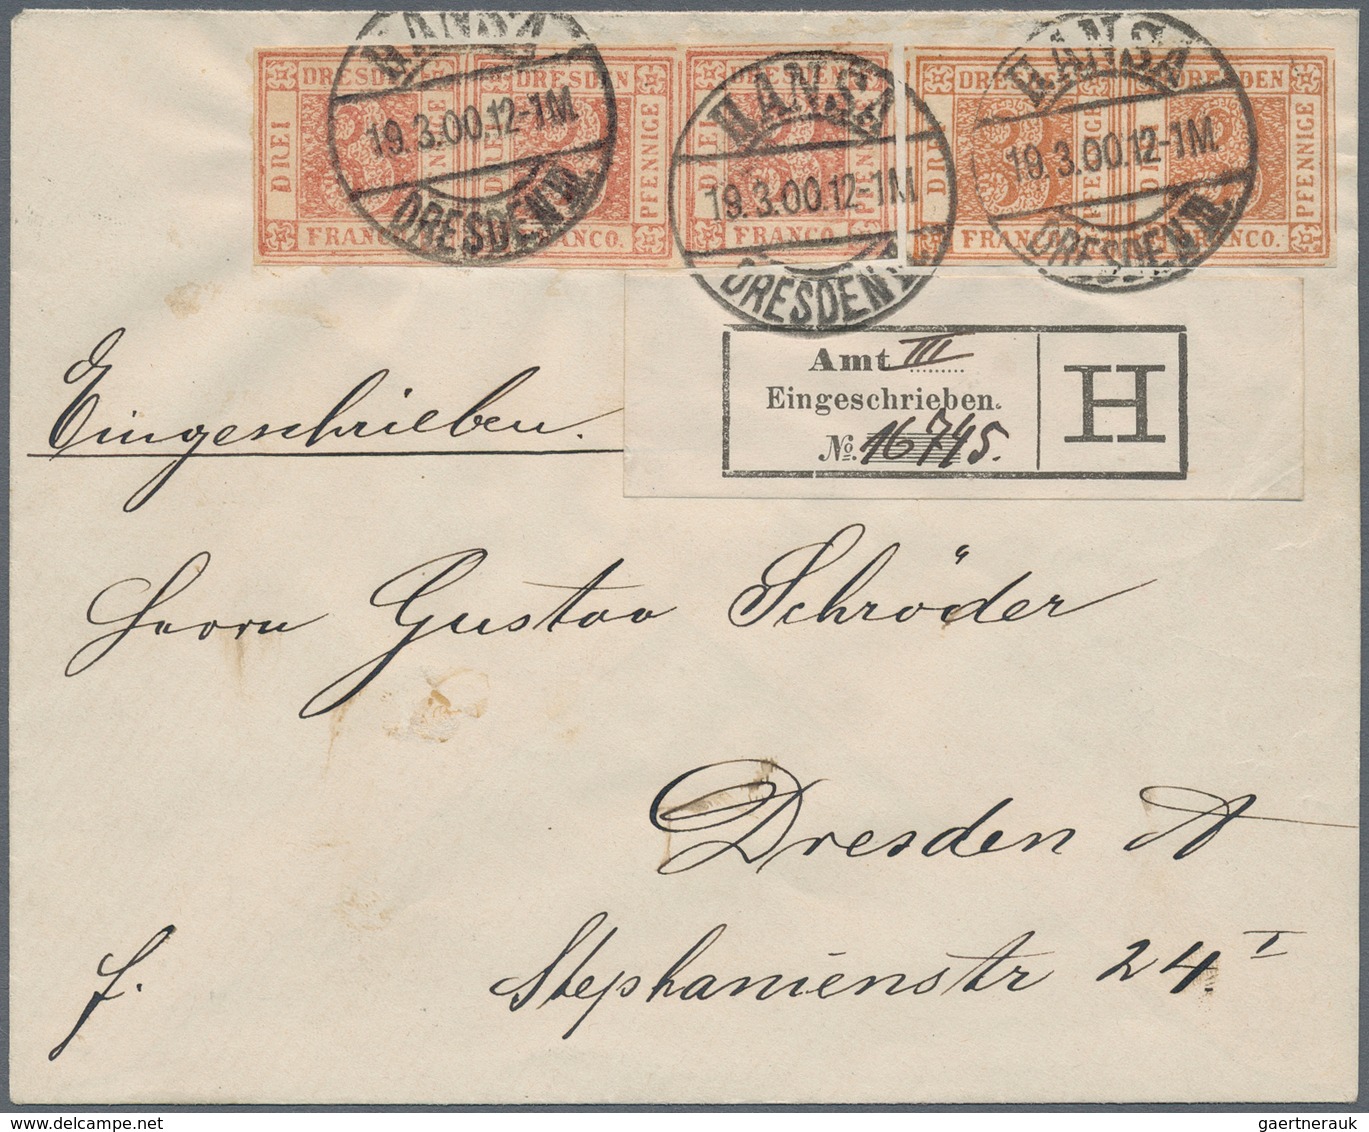 HANSA HANSA HANSA
DRESDEN DRESDEN DRESDEN DRESDEN DRESDEN
19.3.00.12-1M 19.3.00.12-1M 19.3.00.12-1M
DREI PFENNIGE DREI PFENNIGE
FRANCO. FRANCO.
DRESDEN N. DRESDEN DRESDEN N.
Amt III
Eingeschrieben.
No. 16745.
H
Eingeschrieben.
Herrn Gustav Schröder
Dresden A
f. Stephanienstr 24 I
gaertnerauk